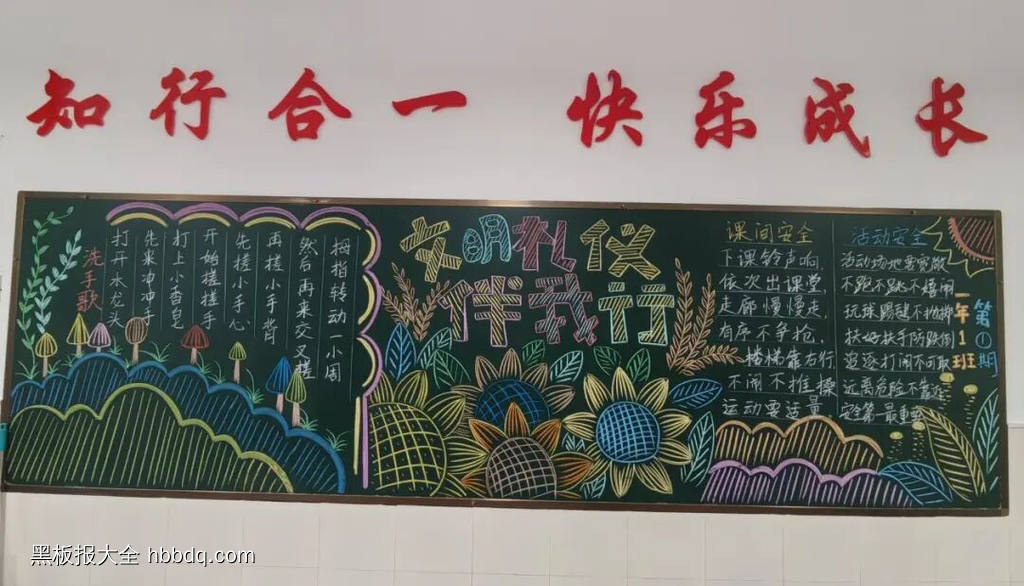 知行合一 快乐成长
文明礼仪
伴我行
洗手歌
打开水龙头
先来冲冲手
打上小香皂
开始搓搓手
先搓小手心
再搓小手背
然后再来交叉搓
拇指转动一小圈
课间安全
下课铃声响
依次出课堂
走廊慢慢走
有序不争抢
楼梯靠右行
不闹不推搡
运动要适量
活动安全
活动场地要宽敞
不跑不跳不嬉闹
玩球踢毽不抛掷
扶好扶手防跌倒
追逐打闹不可取
远离危险不靠近
安全第一最重要
一年1班
第①期
黑板报大全 hbbdq.com